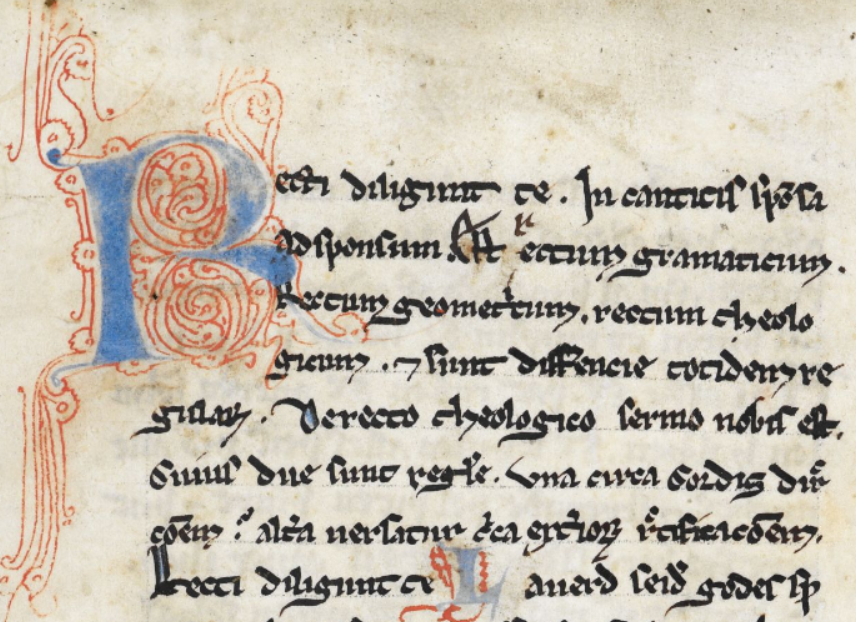 Recti diligunt te. In canticis spōsa
ad sponsum. Est rectum gramaticum.
Rectum geometͥcum. rectum theolo
gicum. ⁊ sunt diffẽencie totidem re
gulaꝝ. De recto theologico sermo nobis est.
Cuius due sunt regl̃e. Vna circa Cordis dir̃
cōem? alt̃a uersatur c̃ca ext̃ioꝝ r̃tificacōem.
Recti diligunt te L auerd seið godes sp